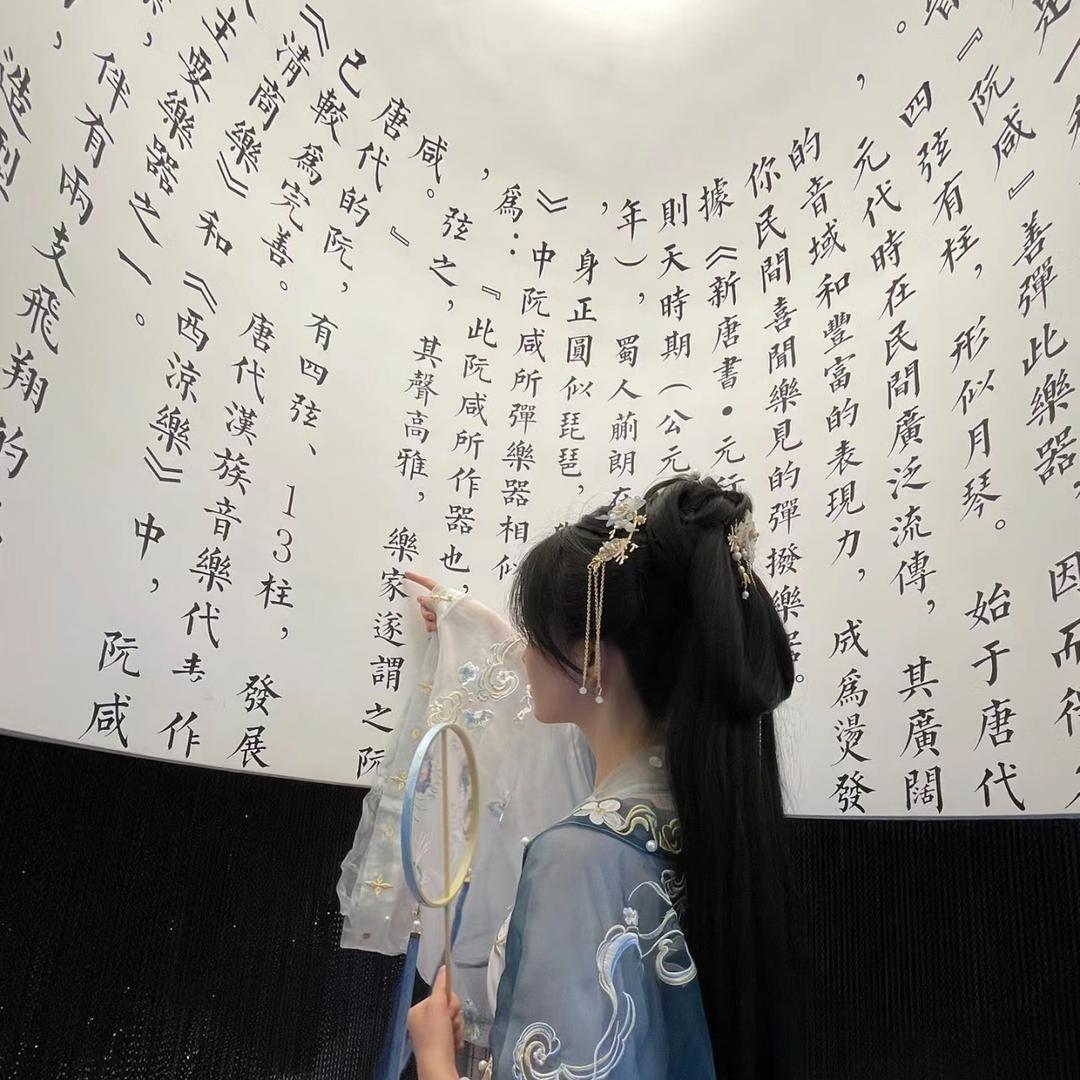 『阮咸』善彈此樂器，因而得
。四弦有柱，形似月琴。始于唐代
，元代時在民間廣泛流傳，其廣闊
的音域和豐富的表現力，成為燙發
你民間喜聞樂見的彈撥樂器。
據《新唐書•元行
則天時期（公元
，年），蜀人蒯朗在
身正圓似琵琶，
》中阮咸所彈樂器相似
，為：『此阮咸所作器也，
弦之，其聲高雅，樂家遂謂之阮
咸。』
唐代的阮，有四弦、13柱，發展
已較為完善。唐代漢族音樂代作
《清商樂》和《西涼樂》中，阮咸
主要樂器之一。
，伴有兩支飛翔的
造型